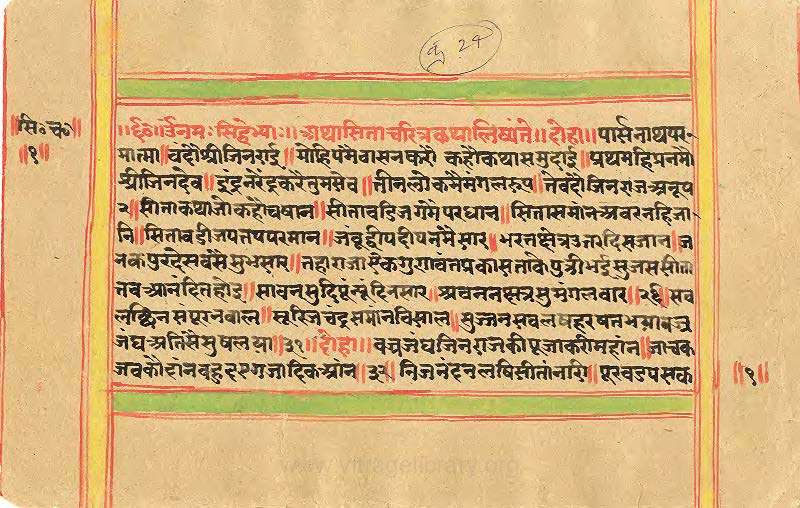 क 24
॥६०॥ॐनमः सिद्धेभ्यः॥अथसिताचरित्रकथालिष्यंते॥दोहा॥पार्सनाथपर-
॥सि॰च॰॥
॥१॥
मात्मा॥वंदौश्रीजिनराई॥मोहिपंमैवासनकरौ कहौकथासमुदाई॥प्रथमहिप्रनमौ
श्रीजिनदेव॥इंद्रनरेंद्रकरैतुमसेव॥तीनलोकमैमंगलरूप॥तेवंदौजिनराजअनूप
२॥सीताकथाजोकहौवषान॥सीतावडिजगमैपरधान॥सितासमानअवरनहिजा-
नि॥सितावडीजपतपपरमान॥जंबूद्वीपदीपनमैसार॥भरतक्षेत्रउत्तरदिसजान॥ज
नकपुरदेसबसैसुभसार॥तहाराजा गुरगावंतप्रकासताकैपुत्रीभईसुजससीता
तबआनंदितहोइ॥सावनसुदिपून्यूदिनसार॥श्रवननषत्रसुमंगलवार॥२६॥सब
लछिनसंपूरनबाल॥सूरिजचंद्रसमानविसाल॥सुज्जनसबलषहरषतभयाबज्र
जंघअतिसैसुषलया॥३१॥दोहा॥वज्रजंघजिनराजकीपूजाकरीमहांन॥जाचक
जबकौदांनबहु गजादिकआंन॥३२॥निजनंदनलषिसीतानारि॥पूरबउपसक
॥१॥
www.vitragelibrary.org